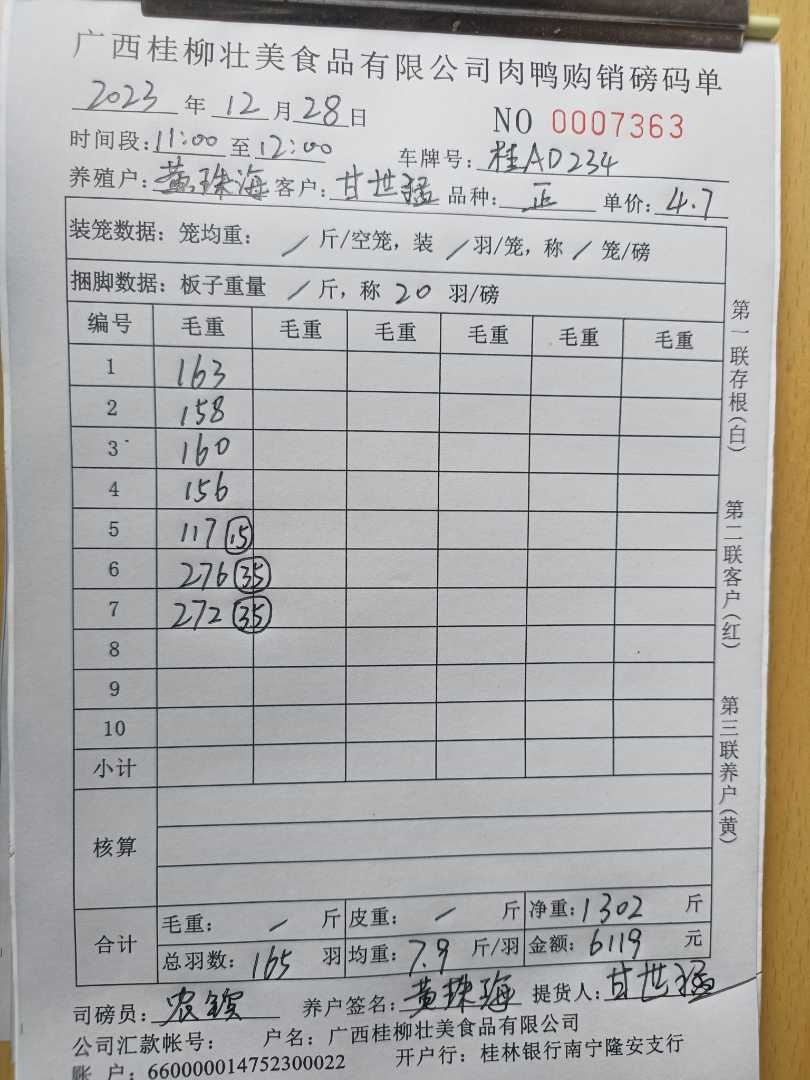 广西桂柳壮美食品有限公司肉鸭购销磅码单
2023 年 12 月 28 日 NO 0007363
时间段: 11:00 至 12:00 车牌号: 桂AD234
养殖户: 黄珠海 客户: 甘世猛 品种: 正 单价: 4.7
装笼数据: 笼均重: / 斤/空笼, 装 / 羽/笼, 称 / 笼/磅
捆脚数据: 板子重量 / 斤, 称 20 羽/磅
编号 毛重 毛重 毛重 毛重 毛重 毛重
1 163
2 158
3 160
4 156
5 117 15
6 276 35
7 272 35
8
9
10
小计
核算
合计 毛重: / 斤 皮重: / 斤 净重: 1302 斤
总羽数: 165 羽 均重: 7.9 斤/羽 金额: 6119 元
司磅员: 农 养户签名: 黄珠海 提货人: 甘世猛
公司汇款帐号: 户名: 广西桂柳壮美食品有限公司
账 户: 660000014752300022 开户行: 桂林银行南宁隆安支行
第一联存根(白)
第二联客户(红)
第三联养户(黄)